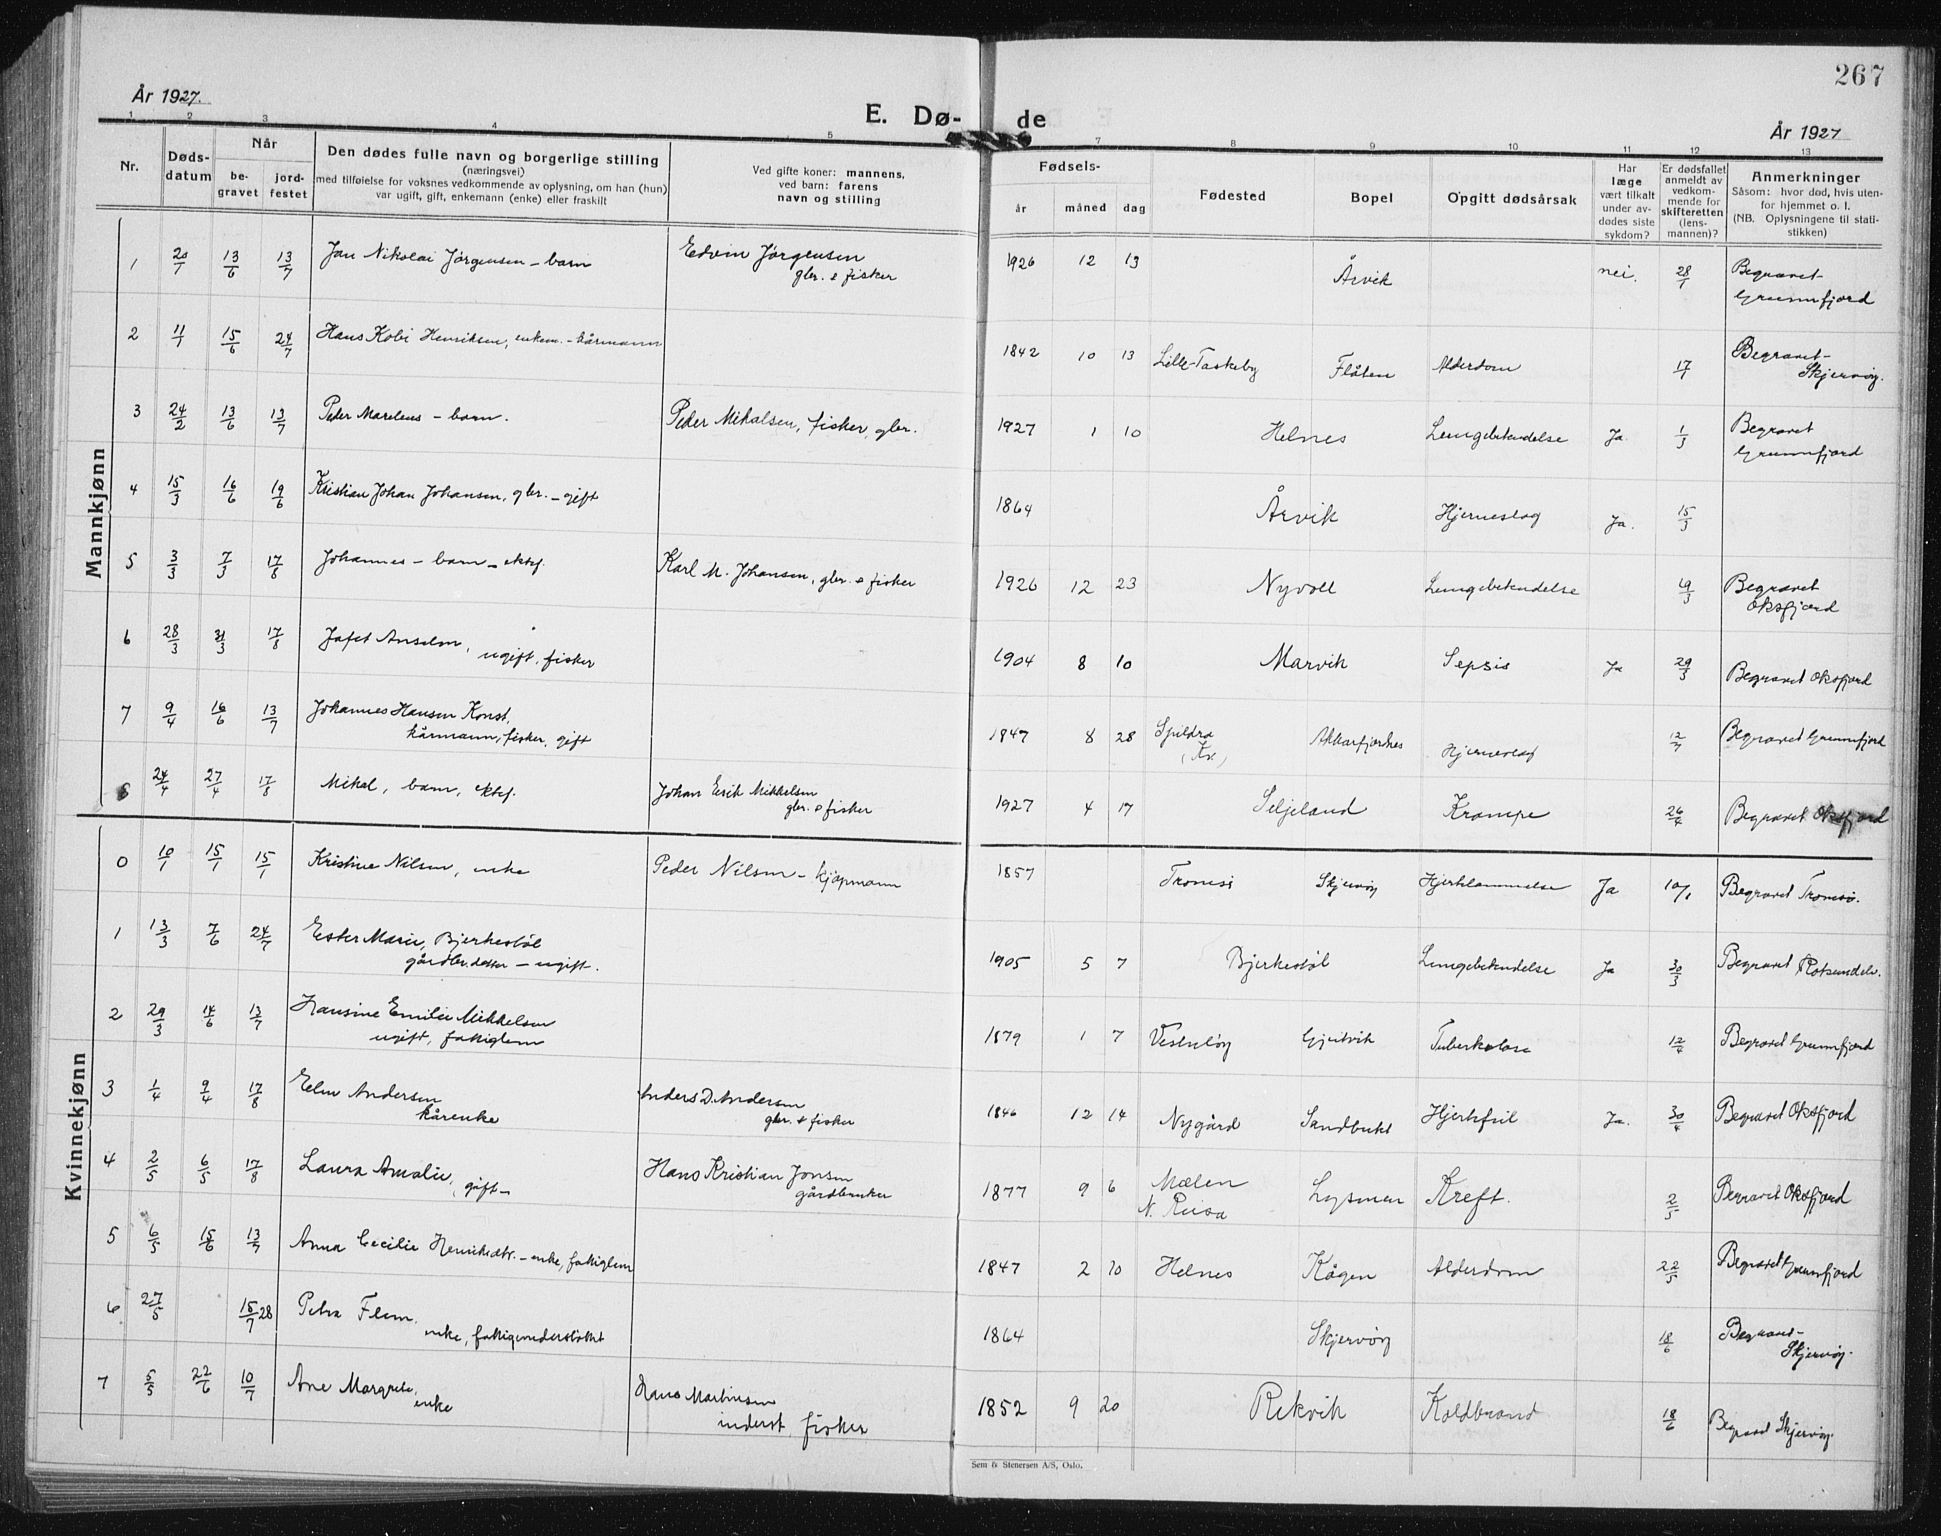 267
År 1927.
E. Dø-
de
År 1927
1 2 3 4 5 7 8 9 10 11 12 13
Nr.
Døds-
datum
Når
be-
gravet
jord-
festet
Den dødes fulle navn og borgerlige stilling
(næringsvei)
med tilføielse for voksnes vedkommende av oplysning, om han (hun)
var ugift, gift, enkemann (enke) eller fraskilt
Ved gifte koner: mannens,
ved barn: farens
navn og stilling
Fødsels-
år måned dag
Fødested
Bopel
Opgitt dødsårsak
Har
læge
vært tilkalt
under av-
dødes siste
sykdom?
Er dødsfallet
anmeldt av
vedkom-
mende for
skifteretten
(lens-
mannen)?
Anmerkninger
Såsom: hvor død, hvis uten-
for hjemmet o. l.
(NB. Oplysningene til stati-
stikken)
Mannkjønn
1 20/1 13/6 13/7 Jan Nikolai Jørgensen – barn Edvin Jørgensen
gbr. & fisker
1926 12 13 Årvik nei. 28/1 Begravet
Grunnfjord
2 11/1 15/6 24/7 Hans Kobi Henriksen, enkem. – kårmann
1842 10 13 Lille-Taskeby Flåten Alderdom 17/1 Begravet
Skjervøy.
3 24/2 13/6 13/7 Peder Marelius – barn. Peder Mikalsen, fisker, gbr.
1927 1 10 Helnes Lungebetendelse Ja 1/3 Begravet
Grunnfjord
4 15/3 16/6 19/6 Kristian Johan Johansen, gbr. – gift
1864 Årvik Hjerneslag Ja. 15/3
5 3/3 7/3 17/8 Johannes – barn – ektef. Karl M. Johansen, gbr. & fisker
1926 12 23 Nyvoll Lungebetendelse 19/3 Begravet
Oksfjord
6 28/3 31/3 17/8 Jafet Anselm, ugift, fisker
1904 8 10 Marvik Sepsis Ja 29/3 Begravet Oksfjord
7 9/4 16/6 13/7 Johannes Hansen Konst,
kårmann, fisker, gift
1847 8 28 Spildra
(Kv.) Akkarfjordnes Hjerneslag Begravet Grunnfjord
8 24/4 27/4 17/8 Mikal, barn, ektef. Johan Erik Mikkelsen
gbr. & fisker
1927 4 17 Seljeland Krampe 26/4 Begravet Oksfjord
Kvinnekjønn
0 10/1 15/1 15/1 Kristine Nilsen, enke Peder Nilsen – kjøpmann
1857 Tromsø Skjervøy Hjertelammelse Ja 10/1 Begravet Tromsø.
1 13/3 7/6 24/7 Ester Marie, Bjerkestøl
gårdbr. datter – ugift.
1905 5 7 Bjerkestøl Lungebetendelse Ja 30/3 Begravet Rotsundelv.
2 29/3 14/6 13/7 Hansine Emilie Mikkelsen
ugift, fattiglem
1879 1 7 Gjeitvik Tuberkulose 12/4 Begravet Grunnfjord
3 1/4 9/4 17/8 Elen Andersen
kårenke
Anders D. Andersen
gbr. & fisker
1846 12 14 Nygård Sandbukt Hjertefeil Ja. 30/4 Begravet Oksfjord
4 2/5 6/5 17/8 Laura Amalie, gift – Hans Kristian Jonsen
gårdbruker
1877 9 6 Mælen
N. Reisa Lysmen Kreft. 2/5 Begravet Oksfjord
5 6/5 15/6 13/7 Anna Cecilie Henriksdtr. – enke, fattiglem
1847 2 10 Helnes Kågen Alderdom 22/5 Begravet Grunnfjord
6 27/5 15/7 28 Petra Flem.
enke, fattigunderstøttet
1864 Skjervøy 18/6 Begravet
Skjervøy.
7 5/5 22/6 10/7 Ane Margrete,
enke
Hans Martinsen
inderst, fisker
1852 9 20 Rekvik Koldbrand 18/6 Begravet Skjervøy.
Sem & Stenersen A/S, Oslo.